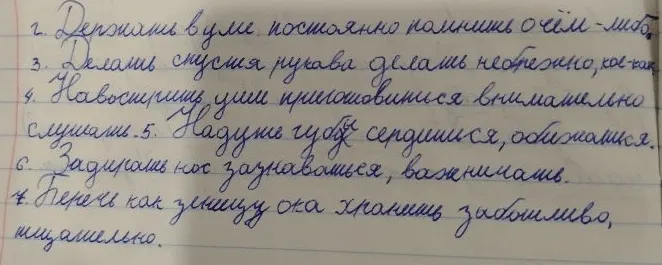 2. Держать в уме постоянно помнить о чём-либо.
3. Делать спустя рукава делать небрежно, кое-как
4. Навострить уши приготовиться внимательно
слушать. 5. Надуть губы сердиться, обижаться.
6. Задирать нос зазнаваться, важничать.
7. Беречь как зеницу ока хранить заботливо,
тщательно.